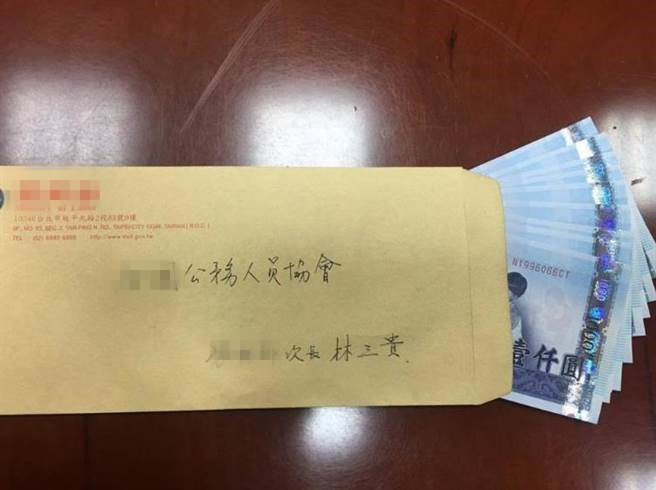 Ministry of Labor
10346台北市延平北路2段83號9樓
9F, NO. 83, SEC. 2, YANPING N. RD., TAIPEI CITY 10346, TAIWAN( R.O.C )
TEL : (02) 8995 6866 http://www.mol.gov.tw
公務人員協會
次長 林三貴
NY996066CT
壹仟圓